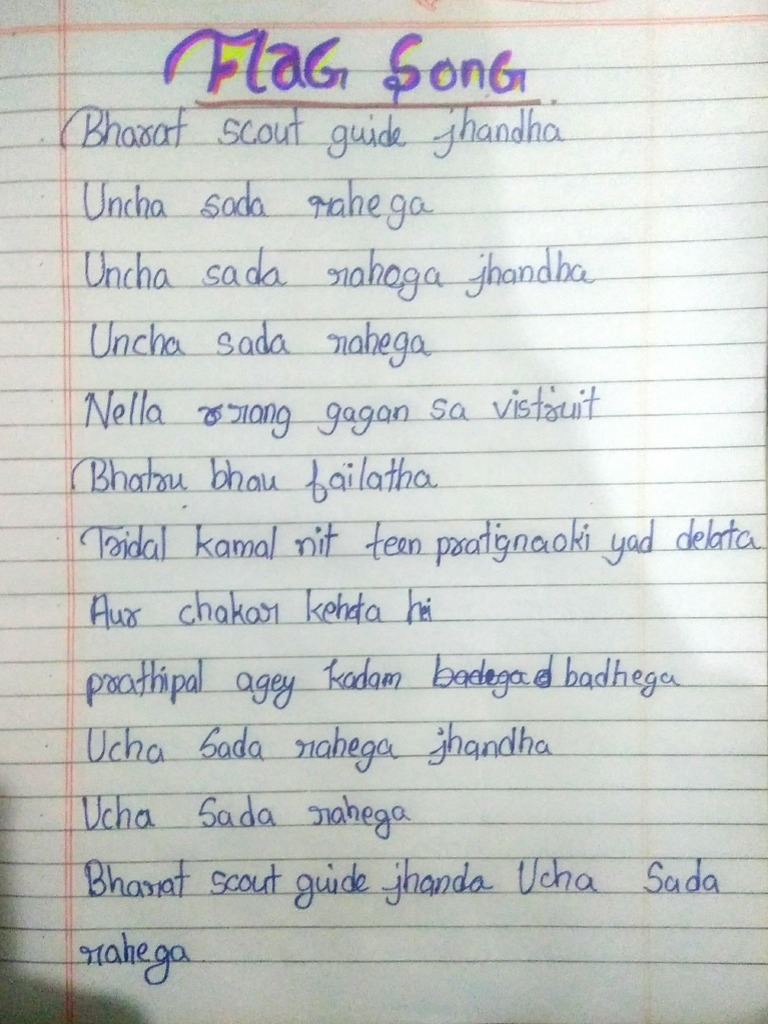 Flag Song
Bharat scout guide jhandha
Uncha sada rahega
Uncha sada rahega jhandha
Uncha sada rahega
Nella rang gagan sa vistruit
Bhatru bhau failatha
Tridal kamal nit teen pratignaoki yad delata
Aur chakar kehta hai
prathipal agey kadam badhega
Ucha Sada rahega jhandha
Ucha Sada rahega
Bharat scout guide jhanda Ucha Sada
rahega